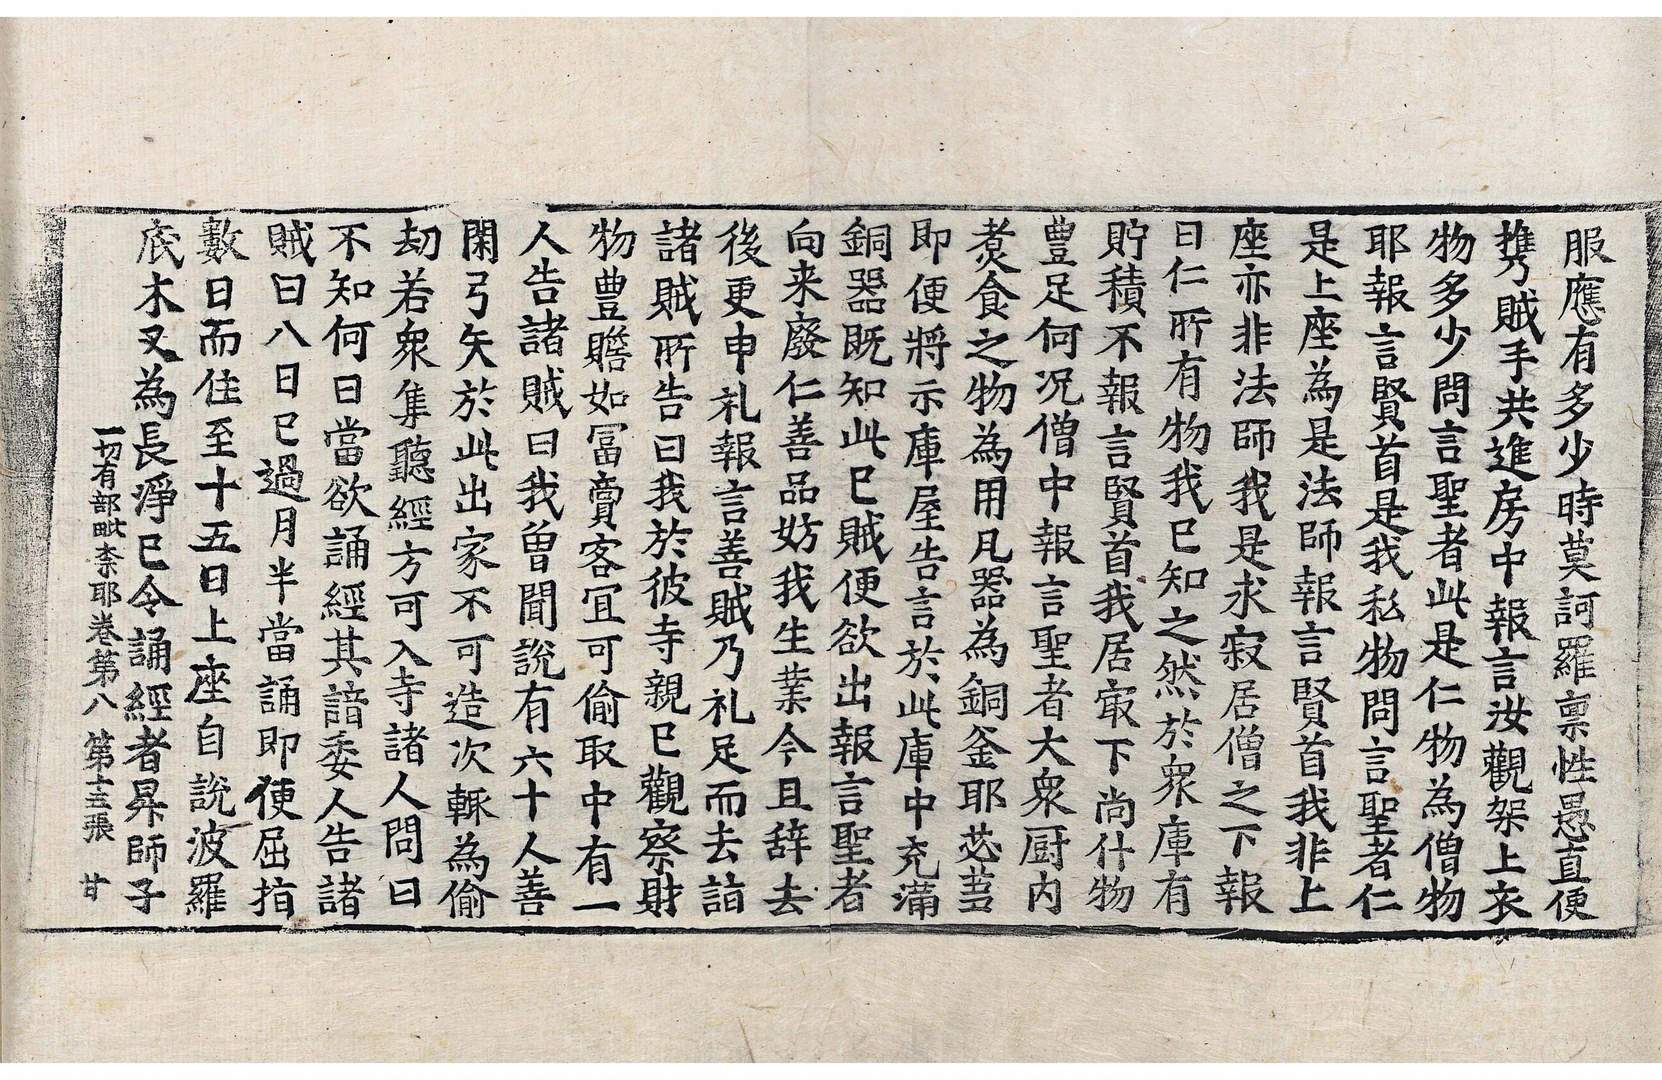 服應有多少時莫訶羅禀性愚直便
携賊手共進房中報言汝觀架上衣
物多少問言聖者此是仁物為僧物
耶報言賢首是我私物問言聖者仁
是上座為是法師報言賢首我非上
座亦非法師我是求寂居僧之下報
曰仁所有物我已知之然於衆庫有
貯積不報言賢首我居㝡下尚什物
豊足何况僧中報言聖者大衆厨內
煮食之物為用凡器為銅釜耶苾芻
即便將示庫屋告言於此庫中充滿
銅器既知此已賊便欲出報言聖者
向来廢仁善品妨我生業今且辞去
後更申礼報言善賊乃礼足而去詣
諸賊所告曰我於彼寺親已觀察財
物豊贍如冨賣客宜可偷取中有一
人告諸賊曰我曽聞說有六十人善
閑弓矢於此出家不可造次輙為偷
劫若衆集聽經方可入寺諸人問曰
不知何日當欲誦經其諳委人告諸
賊曰八日已過月半當誦即便屈指
數日而住至十五日上座自說波羅
底木叉為長淨已令誦經者昇師子
一切有部毗柰耶卷第八　第十五張　甘